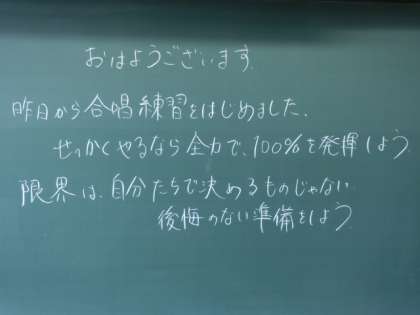 おはようございます.
昨日から合唱練習をはじめました、
せっかくやるなら全力で、100%を発揮しよう
限界は、自分たちで決めるものじゃない
後悔のない準備をしよう.